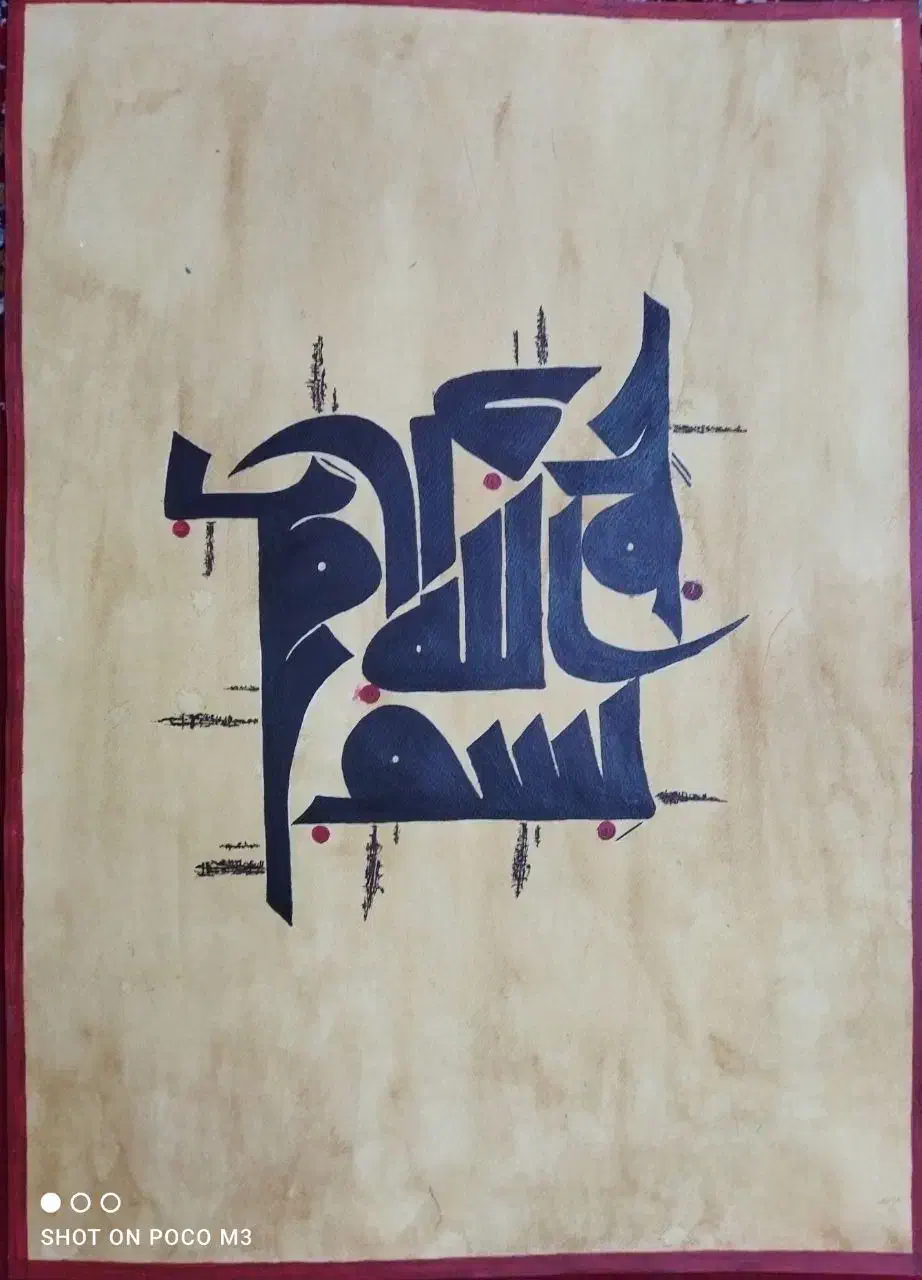 بسم الله الرحمن الرحیم
SHOT ON POCO M3